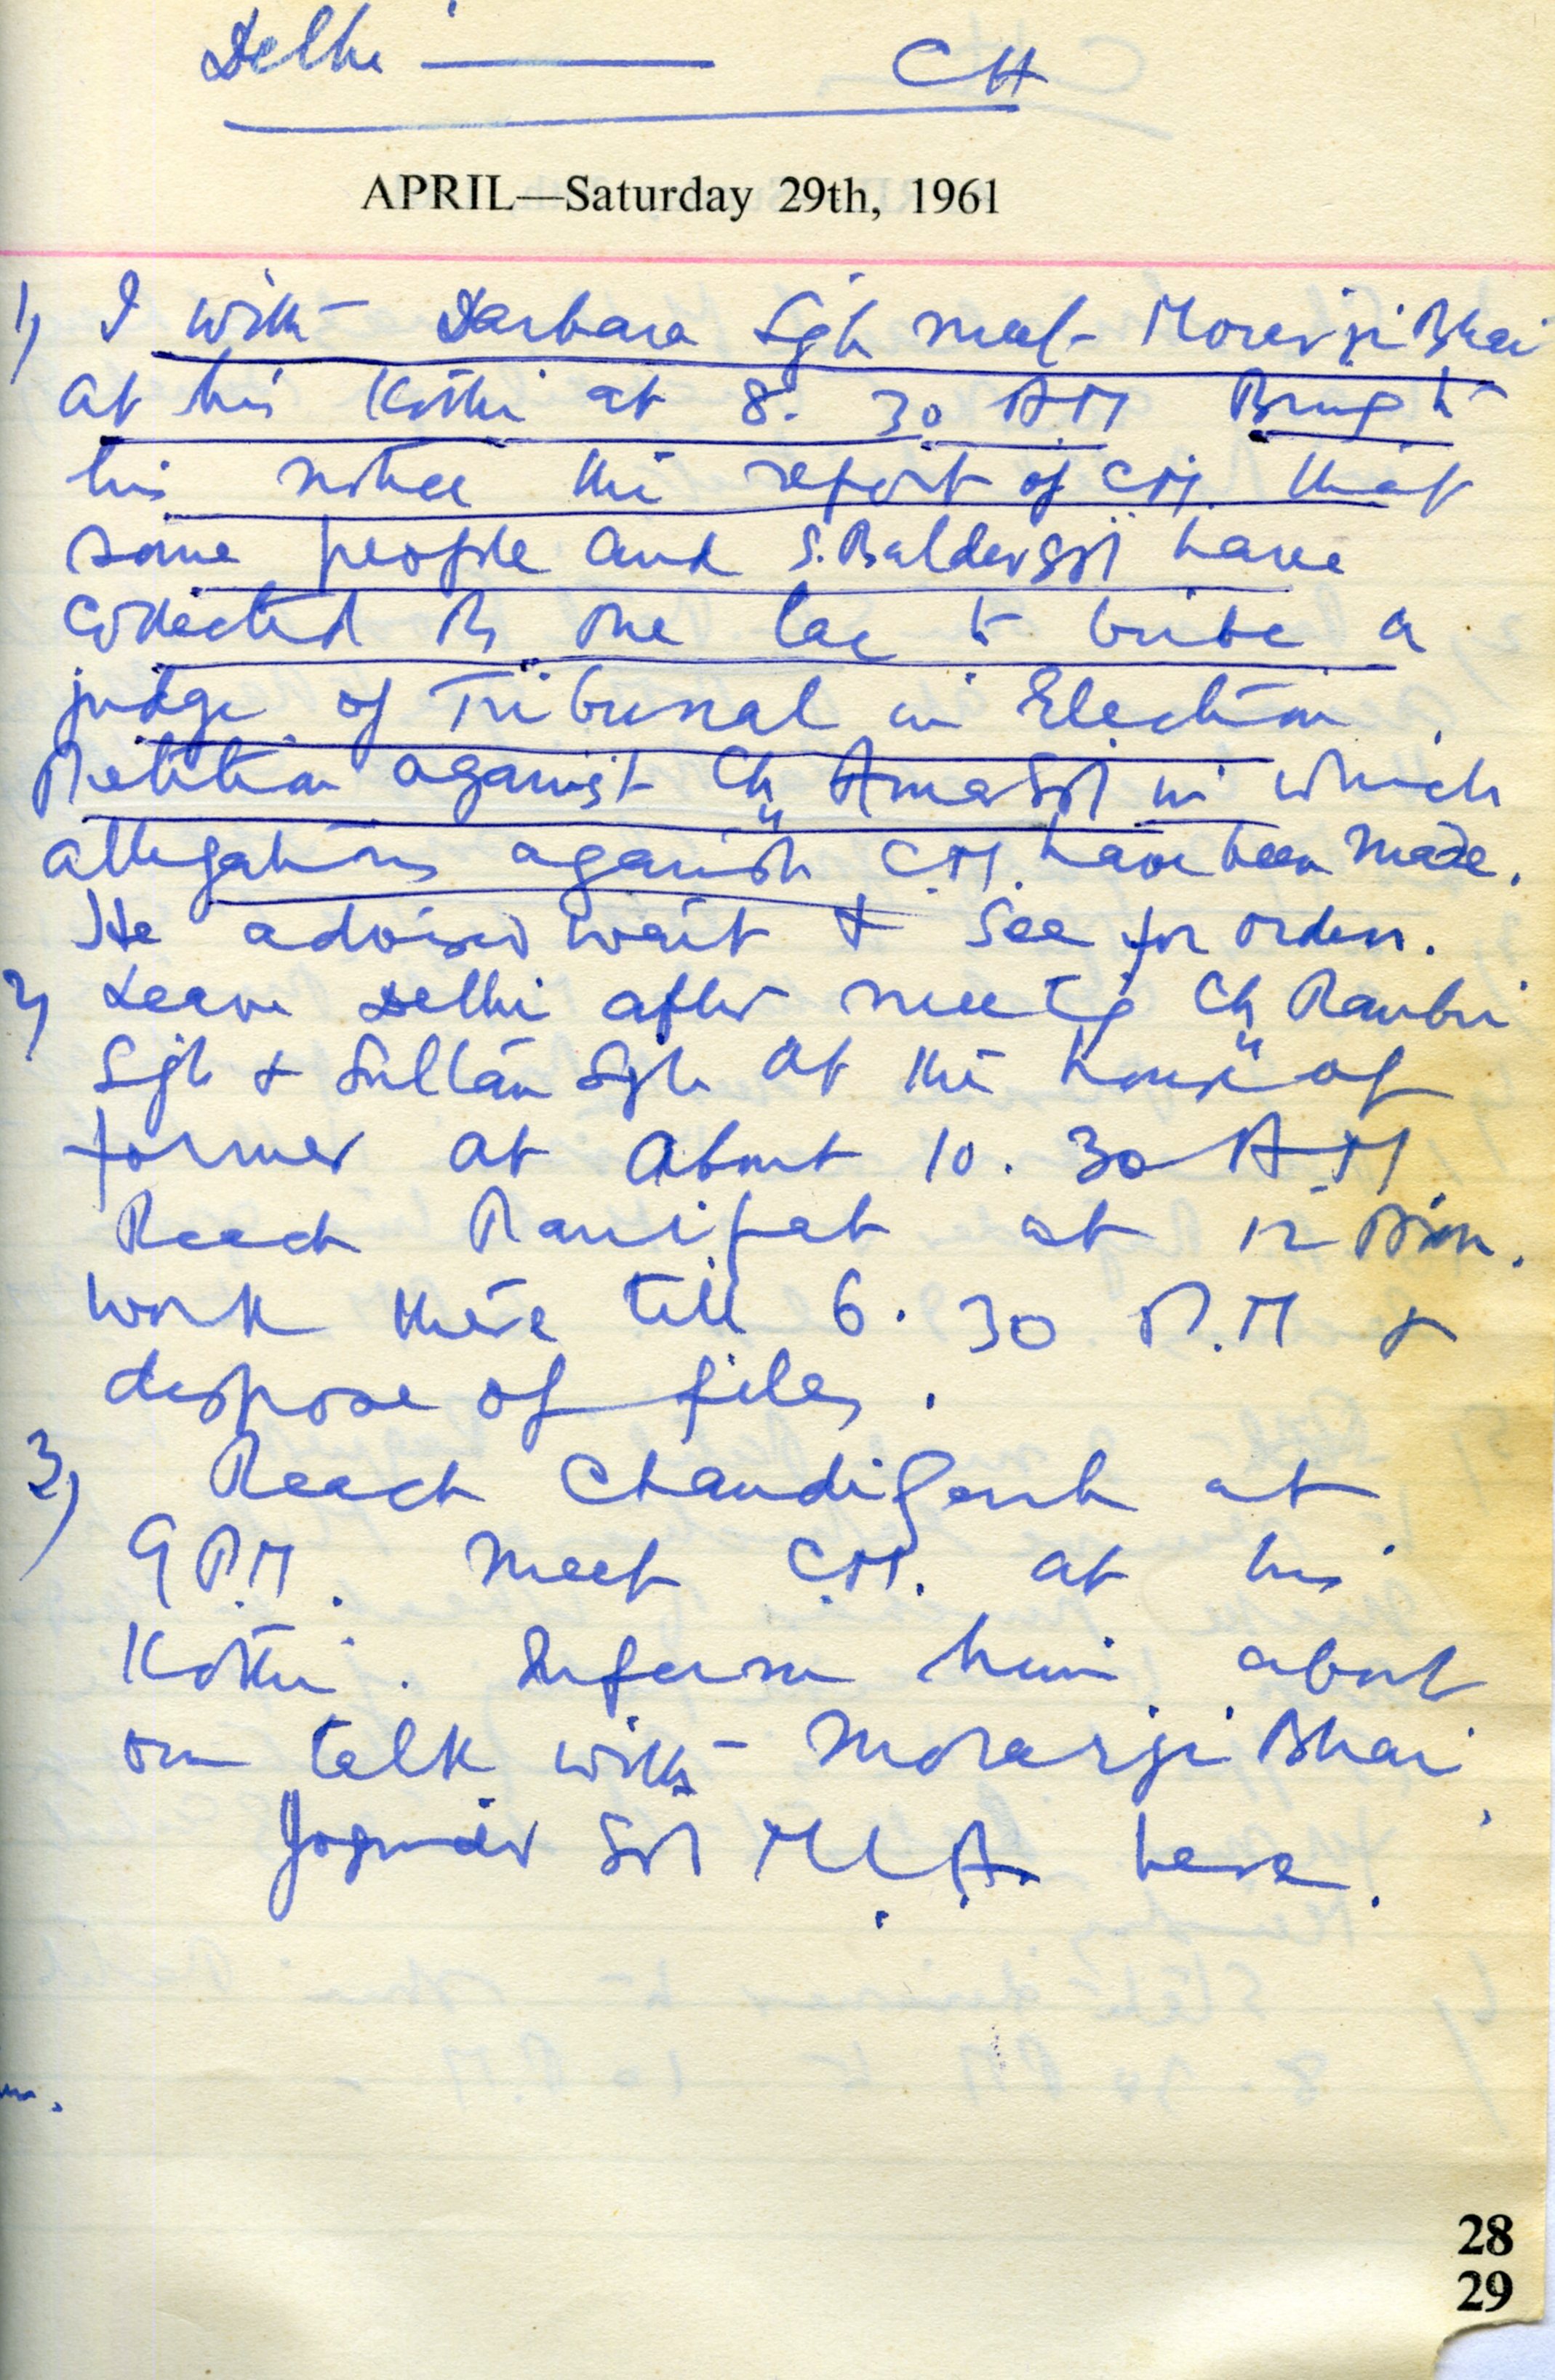 Delhi — CH
APRIL—Saturday 29th, 1961
1) I with Darbara Sgh meet Morarji Bhai
at his Kothi at 8. 30 AM Bring to
his notice the report of C.M. that
some people and S. Baldev Sgh have
collected Rs one lac to bribe a
judge of Tribunal in Election
Petition against Ch Amar Sgh in which
allegations against C.M. have been made.
He advised wait & see for orders.
2) Leave Delhi after meetg Ch Ranbir
Sgh & Sultan Sgh at the house of
former at about 10. 30 AM
Reach Panipat at 12 Noon.
work there till 6. 30 P.M &
dispose of files.
3) Reach Chandigarh at
9 P.M. Meet C.M. at his
Kothi. Inform him about
our talk with Morarji Bhai,
Joginder Sgh M.L.A. here.
28
29